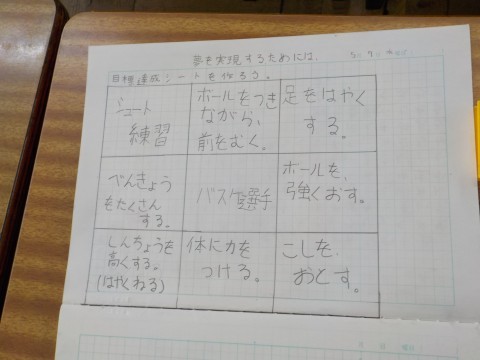 夢を実現するためには、
目標達成シートを作ろう。
シュート
練習
ボールをつき
ながら、
前をむく。
足をはやく
する。
べんきょう
もたくさん
する。
バスケ選手
ボールを、
強くおす。
しんちょうを
高くする。
(はやくねる)
体に力を
つける。
こしを、
おとす。